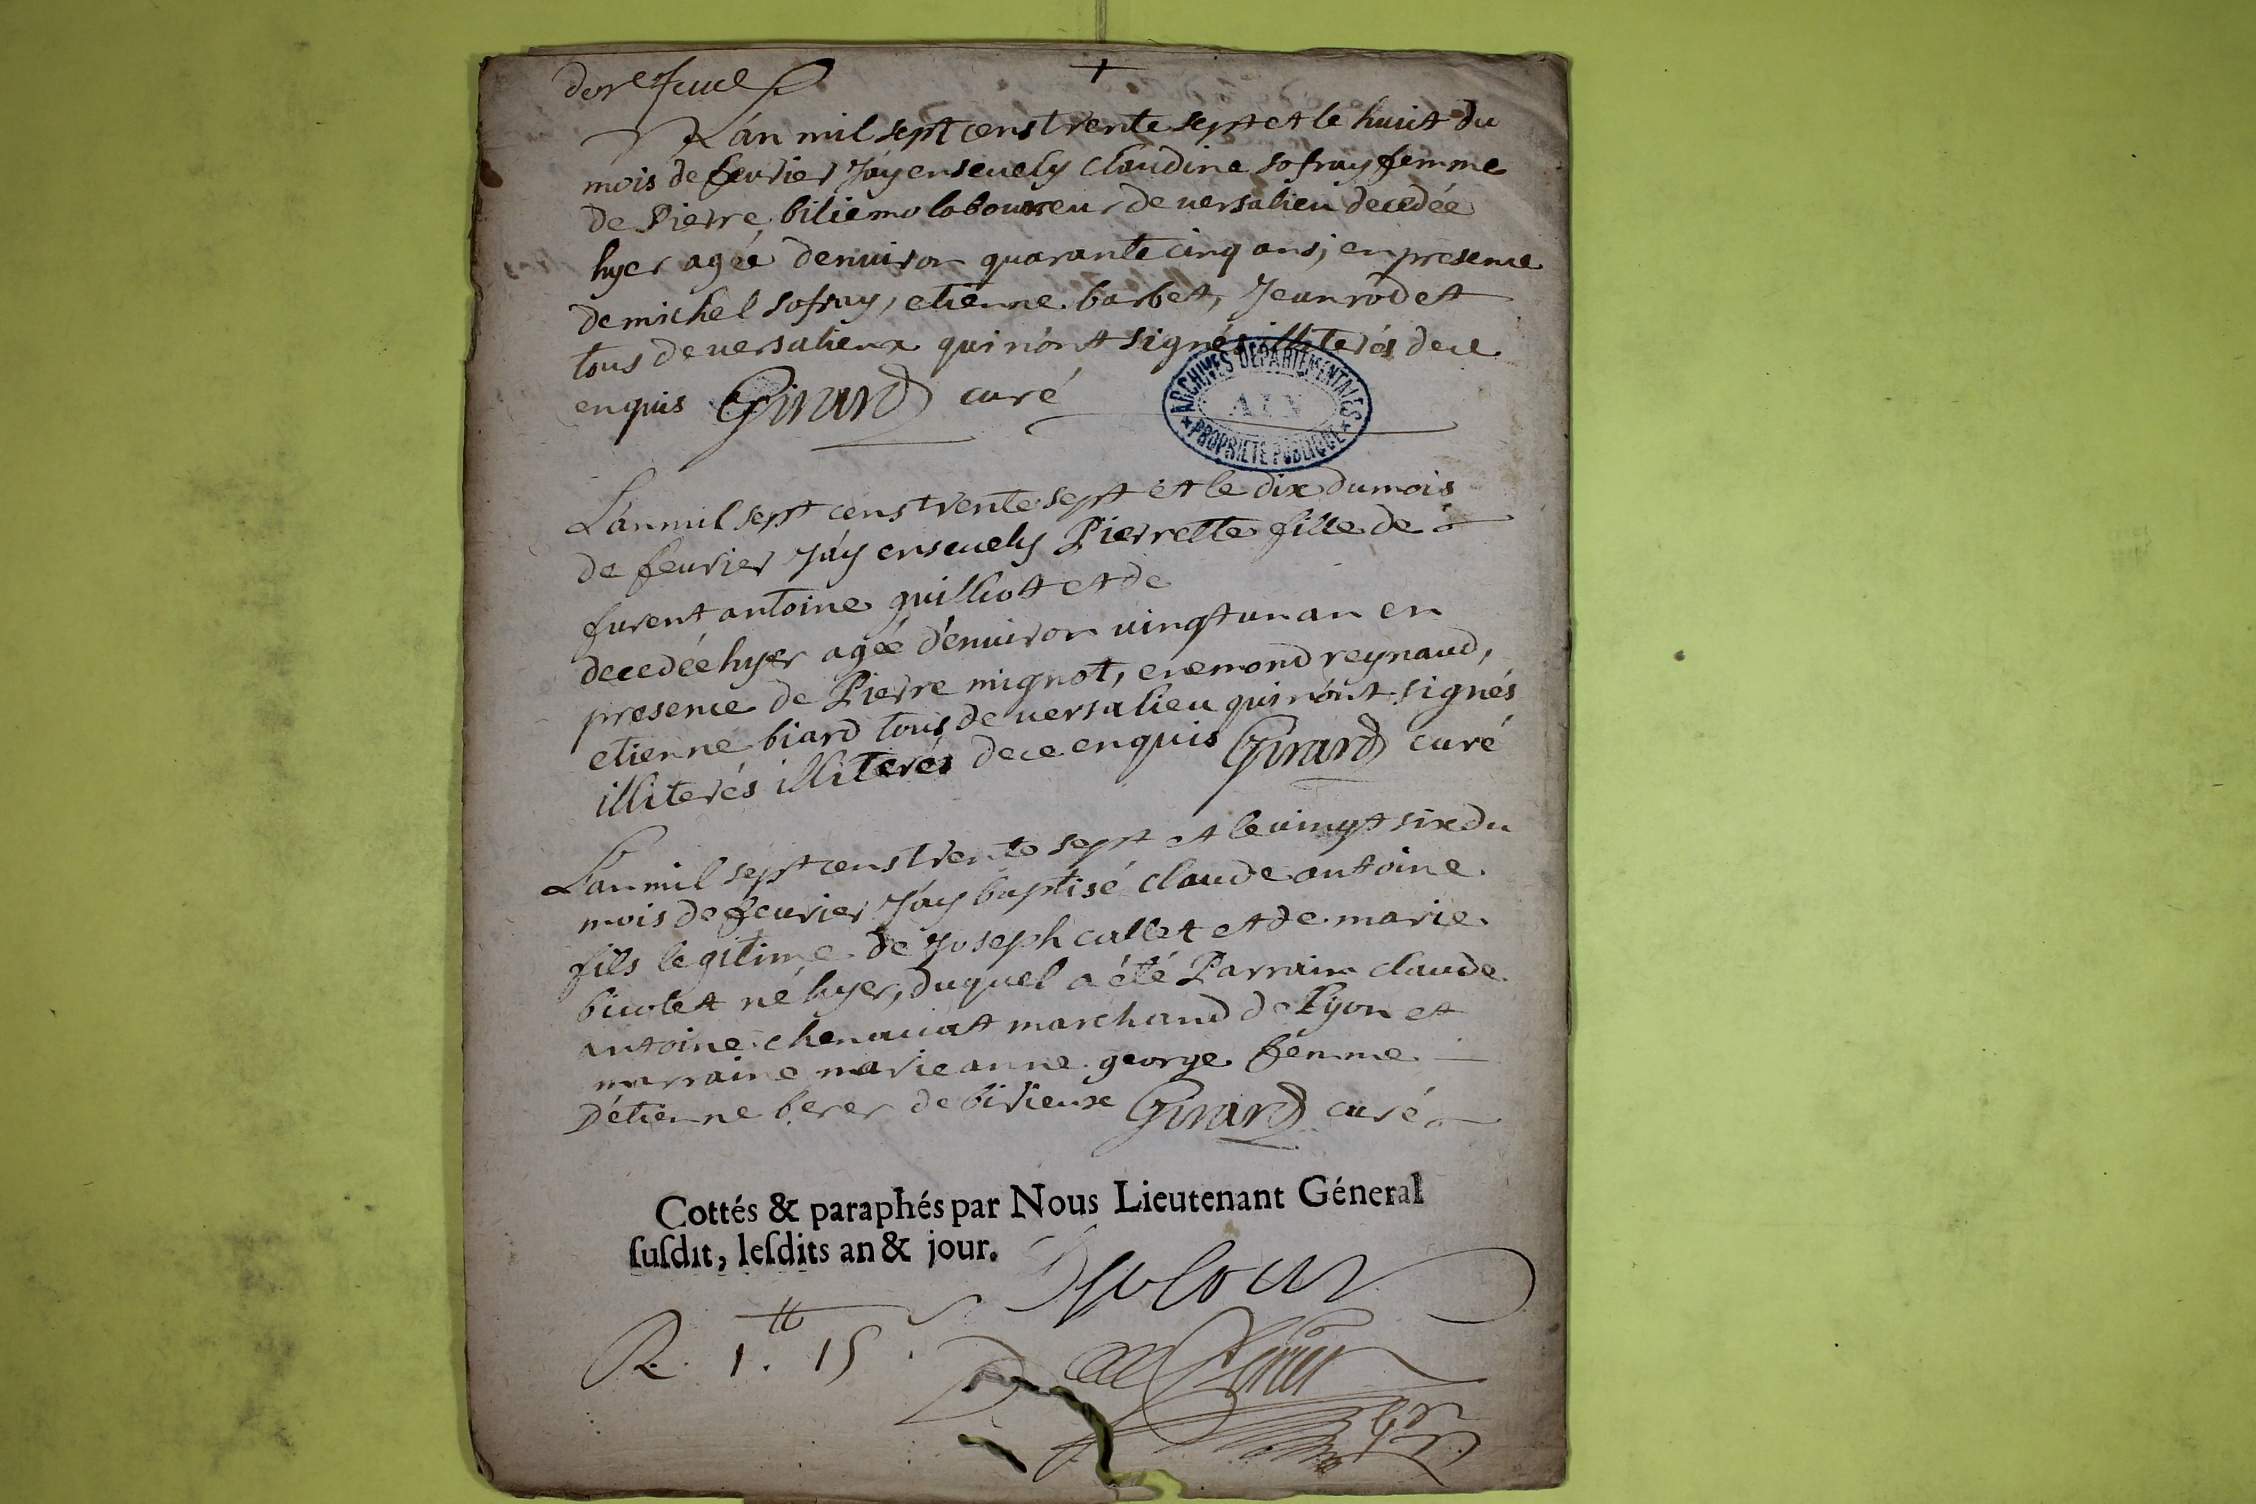 +
L'an mil sept cens trente sept et le huit du
mois de feurier J'ay enseuely claudine sofray femme
de Pierre biliemo laboureur de uersalieu decedée
hyer agée denuiron quarante cinq ans, en presence
de michel sofray, etienne barbet, Jean rodet
tous de uersalieux qui n'ont signés illiterés de ce
enquis Girard curé
ARCHIVES DÉPARTEMENTALES
AIN
PROPRIÉTÉ PUBLIQUE
L'an mil sept cens trente sept et le dix du mois
de feurier J'ay enseuely Pierrette fille de
furent antoine guilliot et de
decedée hyer agée d'enuiron uingt un an en
presence de Pierre mignot, enemond reynaud,
etienne biard tous de uersalieu qui n'ont signés
illiterés illiterés de ce enquis Girard curé
L'an mil sept cens trente sept et le uingt six du
mois de feurier J'ay baptisé claude antoine
fils legitime de Joseph callet et de marie
né hyer, duquel a été Parrain claude
antoine marchand de Lyon et
marraine marie anne george femme
D'étienne berer de birieux Girard curé
Cottés & paraphés par Nous Lieutenant Géneral
ſuſdit, leſdits an & jour.
R. 1.tt 15